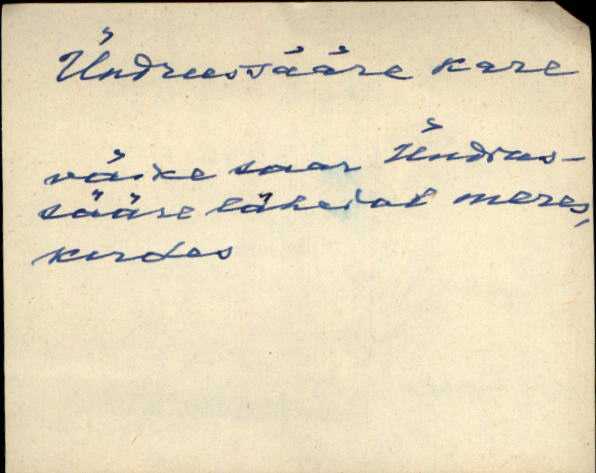 Ündrussääre kare
väike saar Ündrus-
sääre lähedal meres,
kirdes